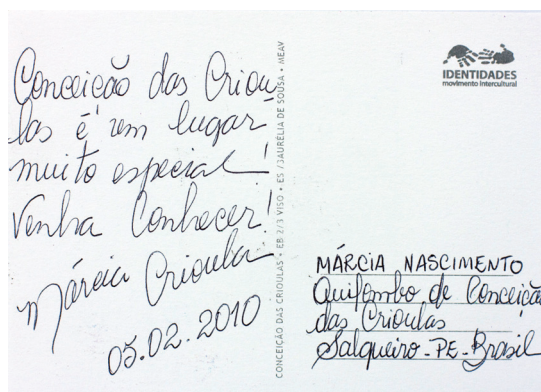 Conceição das Criou
las é um lugar
muito especial!
Venha Conhecer!
Márcia Crioula
05.02.2010
CONCEIÇÃO DAS CRIOULAS • EB 2/3 VISO • ES /JAURÉLIA DE SOUSA • MEAV
IDENTIDADES
movimento intercultural
MÁRCIA NASCIMENTO
Quilombo de Conceição
das Crioulas
Salgueiro-PE-Brasil